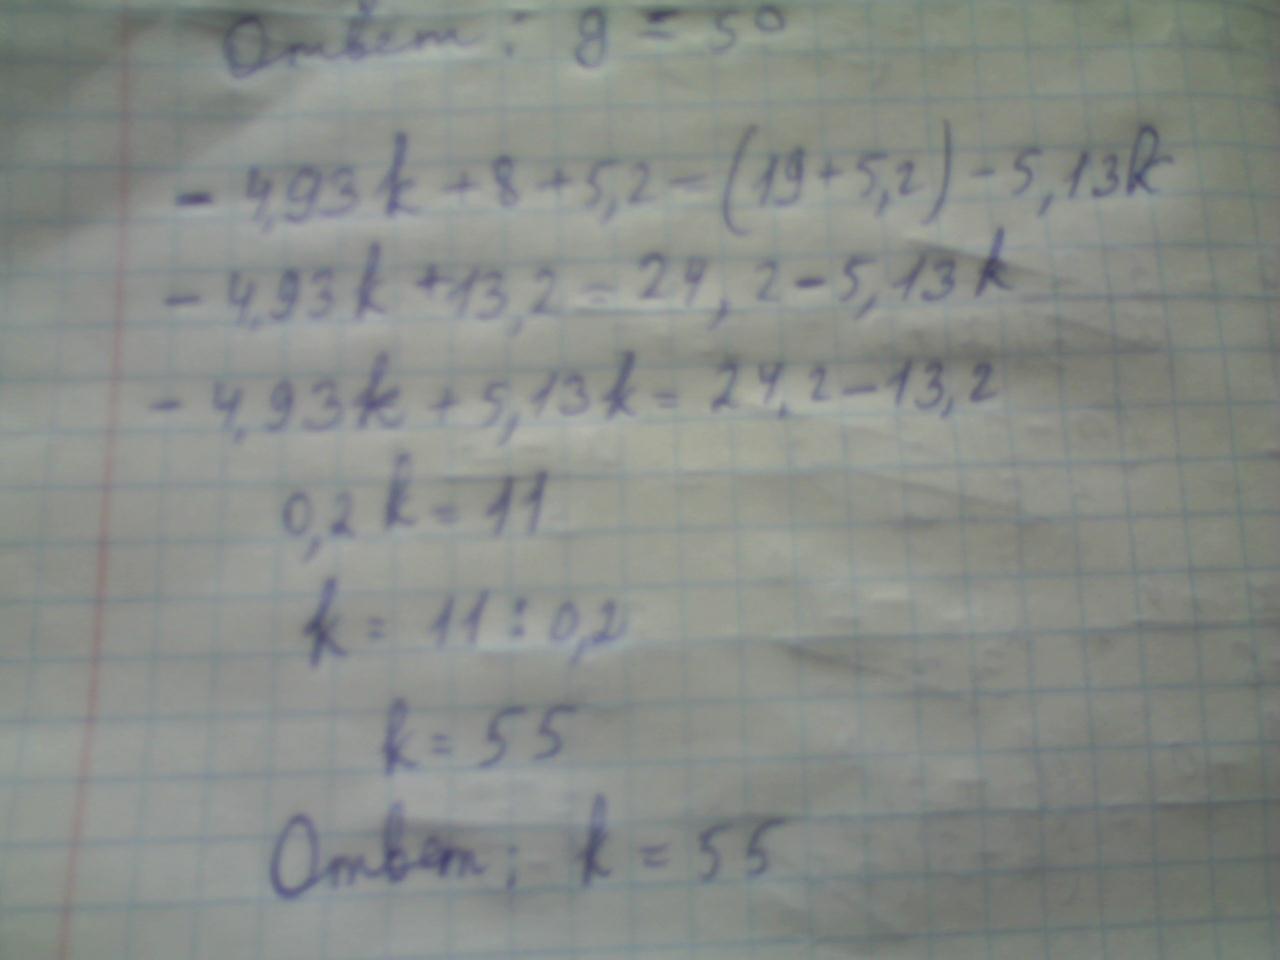 Ответ: g = 50
- 4,93k + 8 + 5,2 = (19 + 5,2) - 5,13k
- 4,93k + 13,2 = 24,2 - 5,13k
- 4,93k + 5,13k = 24,2 - 13,2
0,2k = 11
k = 11 : 0,2
k = 55
Ответ: k = 55